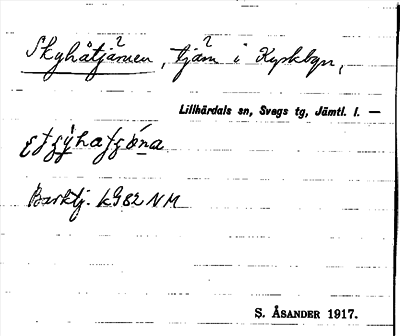 Skyhåtjärnen, tjärn i Kyrkbyn,
Lillhärdals sn, Svegs tg, Jämtl. l. —
Barktj. k9 82 NM
S. ÅSANDER 1917.